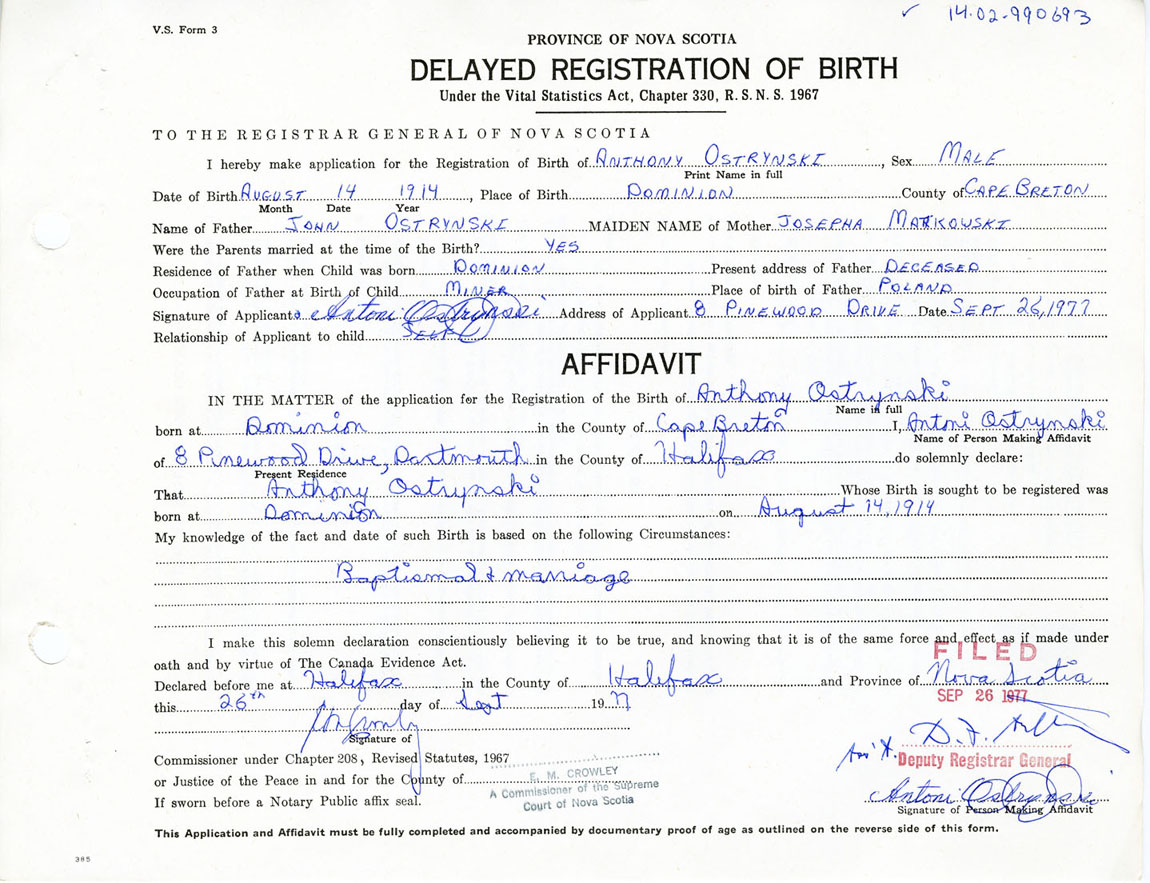 ✓ 14·02-990693
V.S. Form 3
PROVINCE OF NOVA SCOTIA
DELAYED REGISTRATION OF BIRTH
Under the Vital Statistics Act, Chapter 330, R.S.N.S. 1967
TO THE REGISTRAR GENERAL OF NOVA SCOTIA
I hereby make application for the Registration of Birth of ANTHONY OSTRYNSKI, Sex MALE
Print Name in full
Date of Birth AUGUST 14 1914, Place of Birth DOMINION County of CAPE BRETON
Month Date Year
Name of Father JOHN OSTRYNSKI MAIDEN NAME of Mother JOSEPHA MARKOWSKI
Were the Parents married at the time of the Birth? YES
Residence of Father when Child was born DOMINION Present address of Father DECEASED
Occupation of Father at Birth of Child MINER Place of birth of Father POLAND
Signature of Applicant Antoni Ostrynski Address of Applicant 8 PINEWOOD DRIVE Date SEPT 26, 1977
Relationship of Applicant to child SELF
AFFIDAVIT
IN THE MATTER of the application for the Registration of the Birth of Anthony Ostrynski
Name in full
born at Dominion in the County of Cape Breton I, Antoni Ostrynski
Name of Person Making Affidavit
of 8 Pinewood Drive, Dartmouth in the County of Halifax do solemnly declare:
Present Residence
That Anthony Ostrynski Whose Birth is sought to be registered was
born at Dominion on August 14, 1914
My knowledge of the fact and date of such Birth is based on the following Circumstances:
Baptismal & marriage
I make this solemn declaration conscientiously believing it to be true, and knowing that it is of the same force and effect as if made under
FILED
oath and by virtue of The Canada Evidence Act.
Declared before me at Halifax in the County of Halifax and Province of Nova Scotia
SEP 26 1977
this 26th day of Sept 1977
Signature of
D. F.
Commissioner under Chapter 208, Revised Statutes, 1967
Deputy Registrar General
or Justice of the Peace in and for the County of
E. M. CROWLEY
A Commissioner of the Supreme
Court of Nova Scotia
If sworn before a Notary Public affix seal.
Antoni Ostrynski
Signature of Person Making Affidavit
This Application and Affidavit must be fully completed and accompanied by documentary proof of age as outlined on the reverse side of this form.
385